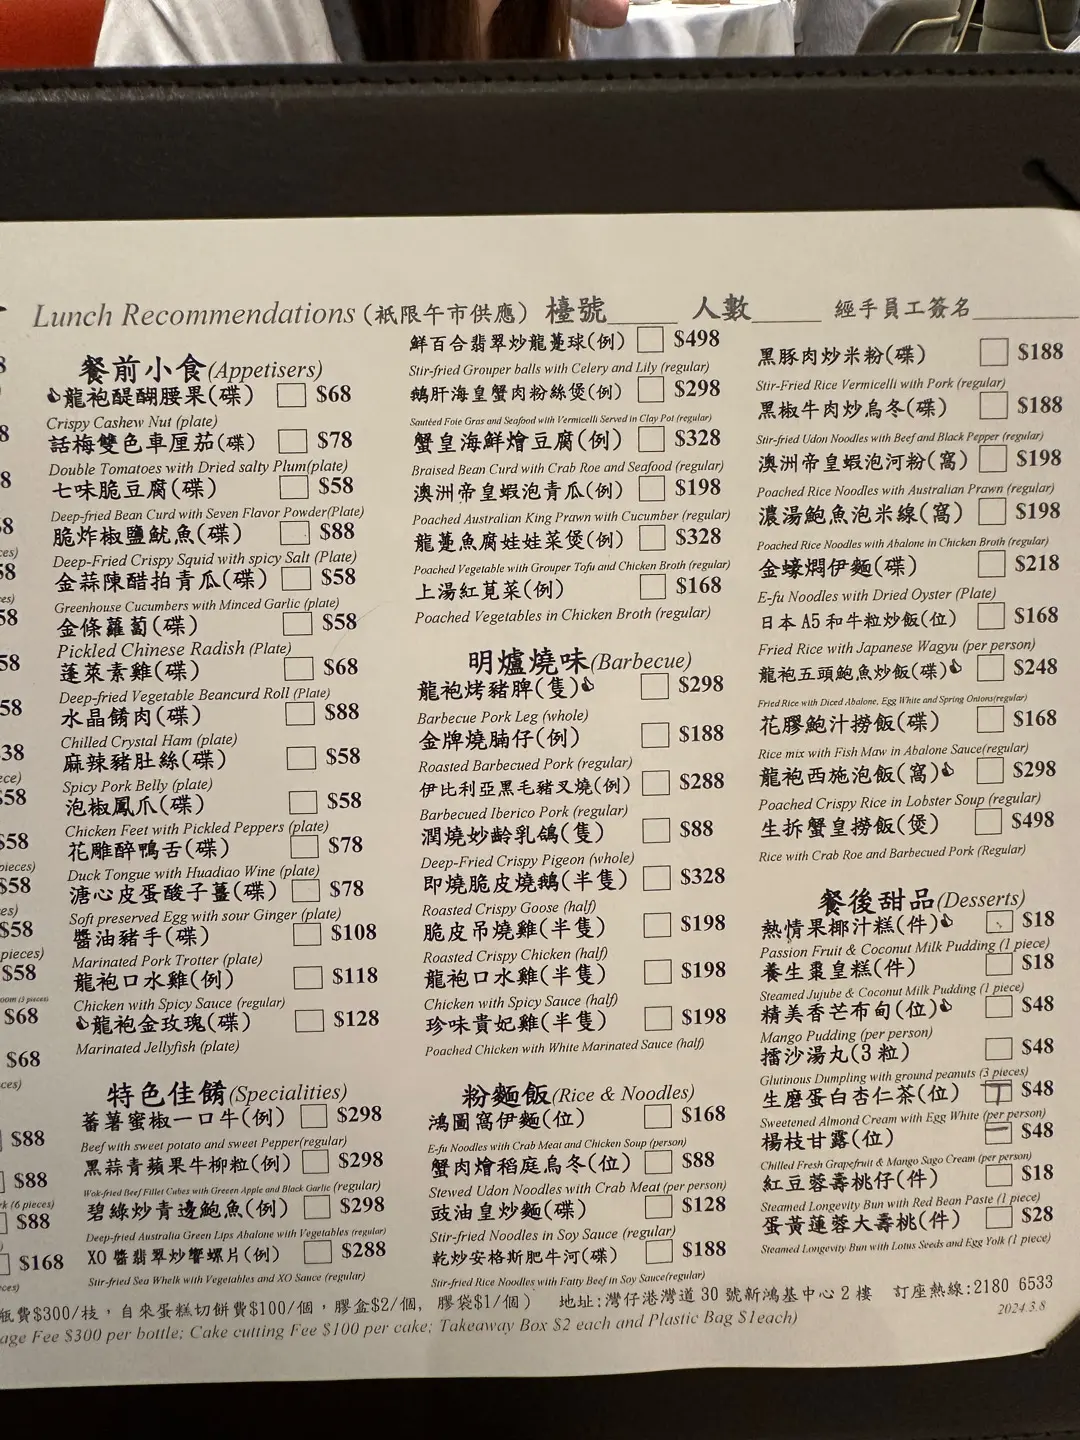 Lunch Recommendations (祇限午市供應) 檯號______ 人數______ 經手員工簽名
餐前小食(Appetisers)
龍袍醍醐腰果(碟) $68
Crispy Cashew Nut (plate)
話梅雙色車厘茄(碟) $78
Double Tomatoes with Dried salty Plum(plate)
七味脆豆腐(碟) $58
Deep-fried Bean Curd with Seven Flavor Powder(Plate)
脆炸椒鹽魷魚(碟) $88
Deep-Fried Crispy Squid with spicy Salt (Plate)
金蒜陳醋拍青瓜(碟) $58
Greenhouse Cucumbers with Minced Garlic (plate)
金條蘿蔔(碟) $58
Pickled Chinese Radish (Plate)
蓬萊素雞(碟) $68
Deep-fried Vegetable Beancurd Roll (Plate)
水晶餚肉(碟) $88
Chilled Crystal Ham (plate)
麻辣豬肚絲(碟) $58
Spicy Pork Belly (plate)
泡椒鳳爪(碟) $58
Chicken Feet with Pickled Peppers (plate)
花雕醉鴨舌(碟) $78
Duck Tongue with Huadiao Wine (plate)
溏心皮蛋酸子薑(碟) $78
Soft preserved Egg with sour Ginger (plate)
醬油豬手(碟) $108
Marinated Pork Trotter (plate)
龍袍口水雞(例) $118
Chicken with Spicy Sauce (regular)
龍袍金玫瑰(碟) $128
Marinated Jellyfish (plate)
特色佳餚(Specialities)
蕃薯蜜椒一口牛(例) $298
Beef with sweet potato and sweet Pepper(regular)
黑蒜青蘋果牛柳粒(例) $298
Wok-fried Beef Fillet Cubes with Greeen Apple and Black Garlic (regular)
碧綠炒青邊鮑魚(例) $298
Deep-fried Australia Green Lips Abalone with Vegetables (regular)
XO 醬翡翠炒響螺片(例) $288
Stir-fried Sea Whelk with Vegetables and XO Sauce (regular)
鮮百合翡翠炒龍躉球(例) $498
Stir-fried Grouper balls with Celery and Lily (regular)
鵝肝海皇蟹肉粉絲煲(例) $298
Sautéed Foie Gras and Seafood with Vermicelli Served in Clay Pot (regular)
蟹皇海鮮燴豆腐(例) $328
Braised Bean Curd with Crab Roe and Seafood (regular)
澳洲帝皇蝦泡青瓜(例) $198
Poached Australian King Prawn with Cucumber (regular)
龍躉魚腐娃娃菜煲(例) $328
Poached Vegetable with Grouper Tofu and Chicken Broth (regular)
上湯紅莧菜(例) $168
Poached Vegetables in Chicken Broth (regular)
明爐燒味(Barbecue)
龍袍烤豬脾(隻) $298
Barbecue Pork Leg (whole)
金牌燒腩仔(例) $188
Roasted Barbecued Pork (regular)
伊比利亞黑毛豬叉燒(例) $288
Barbecued Iberico Pork (regular)
潤燒妙齡乳鴿(隻) $88
Deep-Fried Crispy Pigeon (whole)
即燒脆皮燒鵝(半隻) $328
Roasted Crispy Goose (half)
脆皮吊燒雞(半隻) $198
Roasted Crispy Chicken (half)
龍袍口水雞(半隻) $198
Chicken with Spicy Sauce (half)
珍味貴妃雞(半隻) $198
Poached Chicken with White Marinated Sauce (half)
粉麵飯(Rice & Noodles)
鴻圖窩伊麵(位) $168
E-fu Noodles with Crab Meat and Chicken Soup (person)
蟹肉燴稻庭烏冬(位) $88
Stewed Udon Noodles with Crab Meat (per person)
豉油皇炒麵(碟) $128
Stir-fried Noodles in Soy Sauce (regular)
乾炒安格斯肥牛河(碟) $188
Stir-fried Rice Noodles with Fatty Beef in Soy Sauce(regular)
黑豚肉炒米粉(碟) $188
Stir-Fried Rice Vermicelli with Pork (regular)
黑椒牛肉炒烏冬(碟) $188
Stir-fried Udon Noodles with Beef and Black Pepper (regular)
澳洲帝皇蝦泡河粉(窩) $198
Poached Rice Noodles with Australian Prawn (regular)
濃湯鮑魚泡米線(窩) $198
Poached Rice Noodles with Abalone in Chicken Broth (regular)
金蠔燜伊麵(碟) $218
E-fu Noodles with Dried Oyster (Plate)
日本 A5 和牛粒炒飯(位) $168
Fried Rice with Japanese Wagyu (per person)
龍袍五頭鮑魚炒飯(碟) $248
Fried Rice with Diced Abalone, Egg White and Spring Onions(regular)
花膠鮑汁撈飯(碟) $168
Rice mix with Fish Maw in Abalone Sauce(regular)
龍袍西施泡飯(窩) $298
Poached Crispy Rice in Lobster Soup (regular)
生拆蟹皇撈飯(煲) $498
Rice with Crab Roe and Barbecued Pork (Regular)
餐後甜品(Desserts)
熱情果椰汁糕(件) $18
Passion Fruit & Coconut Milk Pudding (1 piece)
養生棗皇糕(件) $18
Steamed Jujube & Coconut Milk Pudding (1 piece)
精美香芒布甸(位) $48
Mango Pudding (per person)
擂沙湯丸(3 粒) $48
Glutinous Dumpling with ground peanuts (3 pieces)
生磨蛋白杏仁茶(位) $48
Sweetened Almond Cream with Egg White (per person)
楊枝甘露(位) $48
Chilled Fresh Grapefruit & Mango Sago Cream (per person)
紅豆蓉壽桃仔(件) $18
Steamed Longevity Bun with Red Bean Paste (1 piece)
蛋黃蓮蓉大壽桃(件) $28
Steamed Longevity Bun with Lotus Seeds and Egg Yolk (1 piece)
瓶費$300/枝，自來蛋糕切餅費$100/個，膠盒$2/個, 膠袋$1/個） 地址:灣仔港灣道 30 號新鴻基中心 2 樓 訂座熱線:2180 6533
age Fee $300 per bottle; Cake cutting Fee $100 per cake; Takeaway Box $2 each and Plastic Bag $1each)
2024.3.8